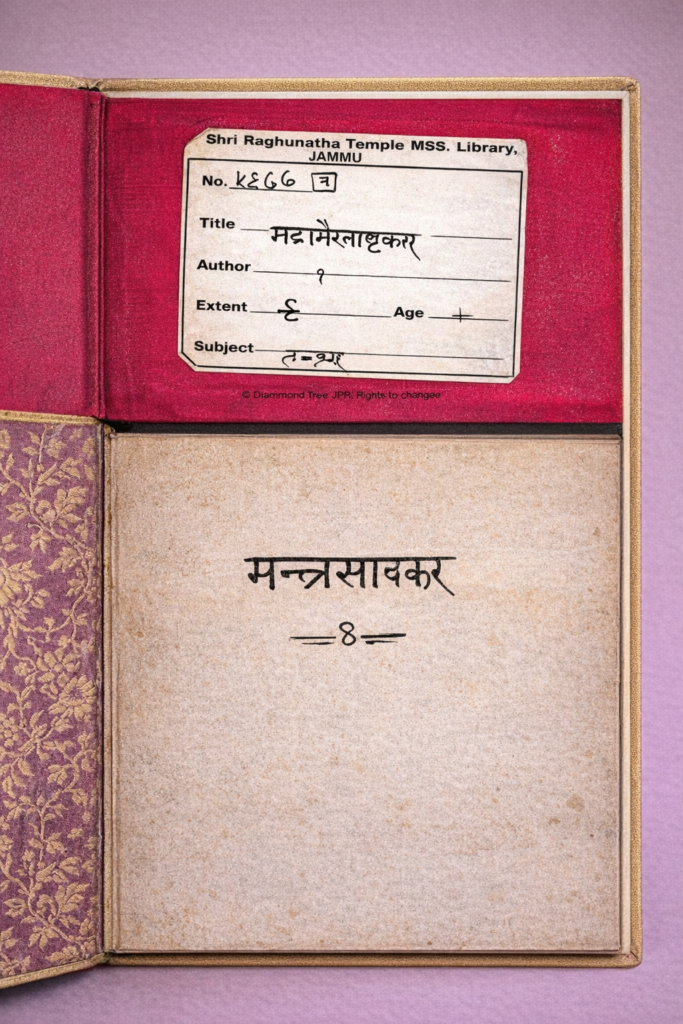 Shri Raghunatha Temple MSS. Library,
JAMMU
No.
Title
Author १
Extent ६ Age +
Subject
© Diammond Tree JPR. Rights to changee
मन्त्रसावकर
४